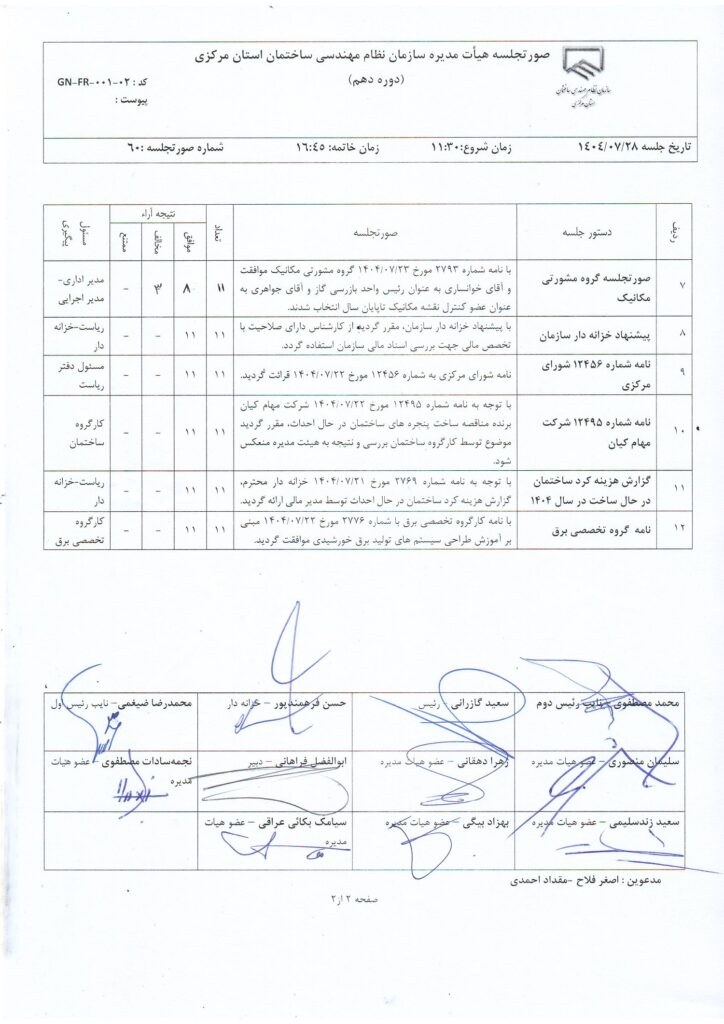 صورتجلسه هیأت مدیره سازمان نظام مهندسی ساختمان استان مرکزی
(دوره دهم)
سازمان نظام مهندسی ساختمان
استان مرکزی
کد : GN-FR-۰۰۱-۰۲
پیوست :
تاریخ جلسه ۱۴۰۴/۰۷/۲۸ زمان شروع:۱۱:۳۰ زمان خاتمه: ۱۶:۴۵ شماره صورتجلسه :۶۰
ردیف دستور جلسه صورتجلسه تعداد نتیجه آراء مسئول پیگیری
موافق مخالف ممتنع
۷ صورتجلسه گروه مشورتی مکانیک
با نامه شماره ۲۷۹۳ مورخ ۱۴۰۴/۰۷/۲۳ گروه مشورتی مکانیک موافقت
و آقای خوانساری به عنوان رئیس واحد بازرسی گاز و آقای جواهری به
عنوان عضو کنترل نقشه مکانیک تاپایان سال انتخاب شدند.
۱۱ ۸ ۳ - مدیر اداری-
مدیر اجرایی
۸ پیشنهاد خزانه دار سازمان
با پیشنهاد خزانه دار سازمان، مقرر گردید از کارشناس دارای صلاحیت با
تخصص مالی جهت بررسی اسناد مالی سازمان استفاده گردد.
۱۱ ۱۱ - - ریاست-خزانه
دار
۹ نامه شماره ۱۲۴۵۶ شورای
مرکزی
نامه شورای مرکزی به شماره ۱۲۴۵۶ مورخ ۱۴۰۴/۰۷/۲۲ قرائت گردید.
۱۱ ۱۱ - - مسئول دفتر
ریاست
۱۰ نامه شماره ۱۲۴۹۵ شرکت
مهام کیان
با توجه به نامه شماره ۱۲۴۹۵ مورخ ۱۴۰۴/۰۷/۲۲ شرکت مهام کیان
برنده مناقصه ساخت پنجره های ساختمان در حال احداث، مقرر گردید
موضوع توسط کارگروه ساختمان بررسی و نتیجه به هیئت مدیره منعکس
شود.
۱۱ ۱۱ - - کارگروه
ساختمان
۱۱ گزارش هزینه کرد ساختمان
در حال ساخت در سال ۱۴۰۴
با توجه به نامه شماره ۲۷۶۹ مورخ ۱۴۰۴/۰۷/۲۱ خزانه دار محترم،
گزارش هزینه کرد ساختمان در حال احداث توسط مدیر مالی ارائه گردید.
۱۱ ۱۱ - - ریاست-خزانه
دار
۱۲ نامه گروه تخصصی برق
با نامه کارگروه تخصصی برق با شماره ۲۷۷۶ مورخ ۱۴۰۴/۰۷/۲۲ مبنی
بر آموزش طراحی سیستم های تولید برق خورشیدی موافقت گردید.
۱۱ ۱۱ - - کارگروه
تخصصی برق
محمد مصطفوی – نایب رئیس دوم سعید گازرانی – رئیس حسن فرهمندپور – خزانه دار محمدرضا ضیغمی – نایب رئیس اول
سلیمان منصوری – عضو هیات مدیره زهرا دهقانی – عضو هیات مدیره ابوالفضل فراهانی – دبیر نجمه‌سادات مصطفوی – عضو هیات
مدیره
سعید زندسلیمی – عضو هیات مدیره بهزاد بیگی – عضو هیات مدیره سیامک بکائی عراقی – عضو هیات
مدیره
مدعوین : اصغر فلاح –مقداد احمدی
صفحه ۲ از۲